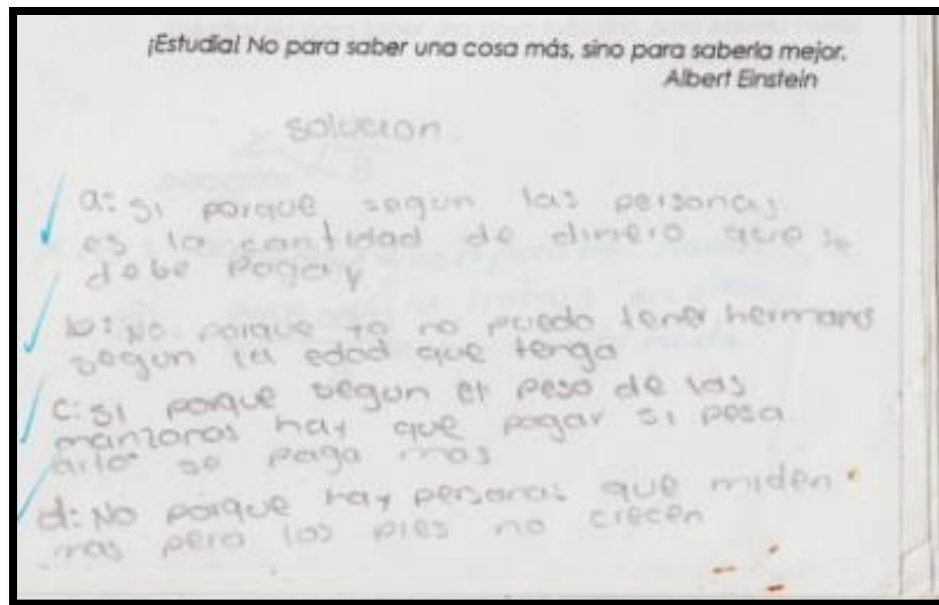 ¡Estudia! No para saber una cosa más, sino para saberla mejor.
Albert Einstein
solucion.
a: si porque segun las personas
es la cantidad de dinero que se
debe pagar
b: No porque yo no puedo tener hermanos
segun la edad que tenga
c: si porque segun el peso de las
manzanas hay que pagar si pesa
arto se paga mas
d: No porque hay personas que miden
mas pero los pies no crecen